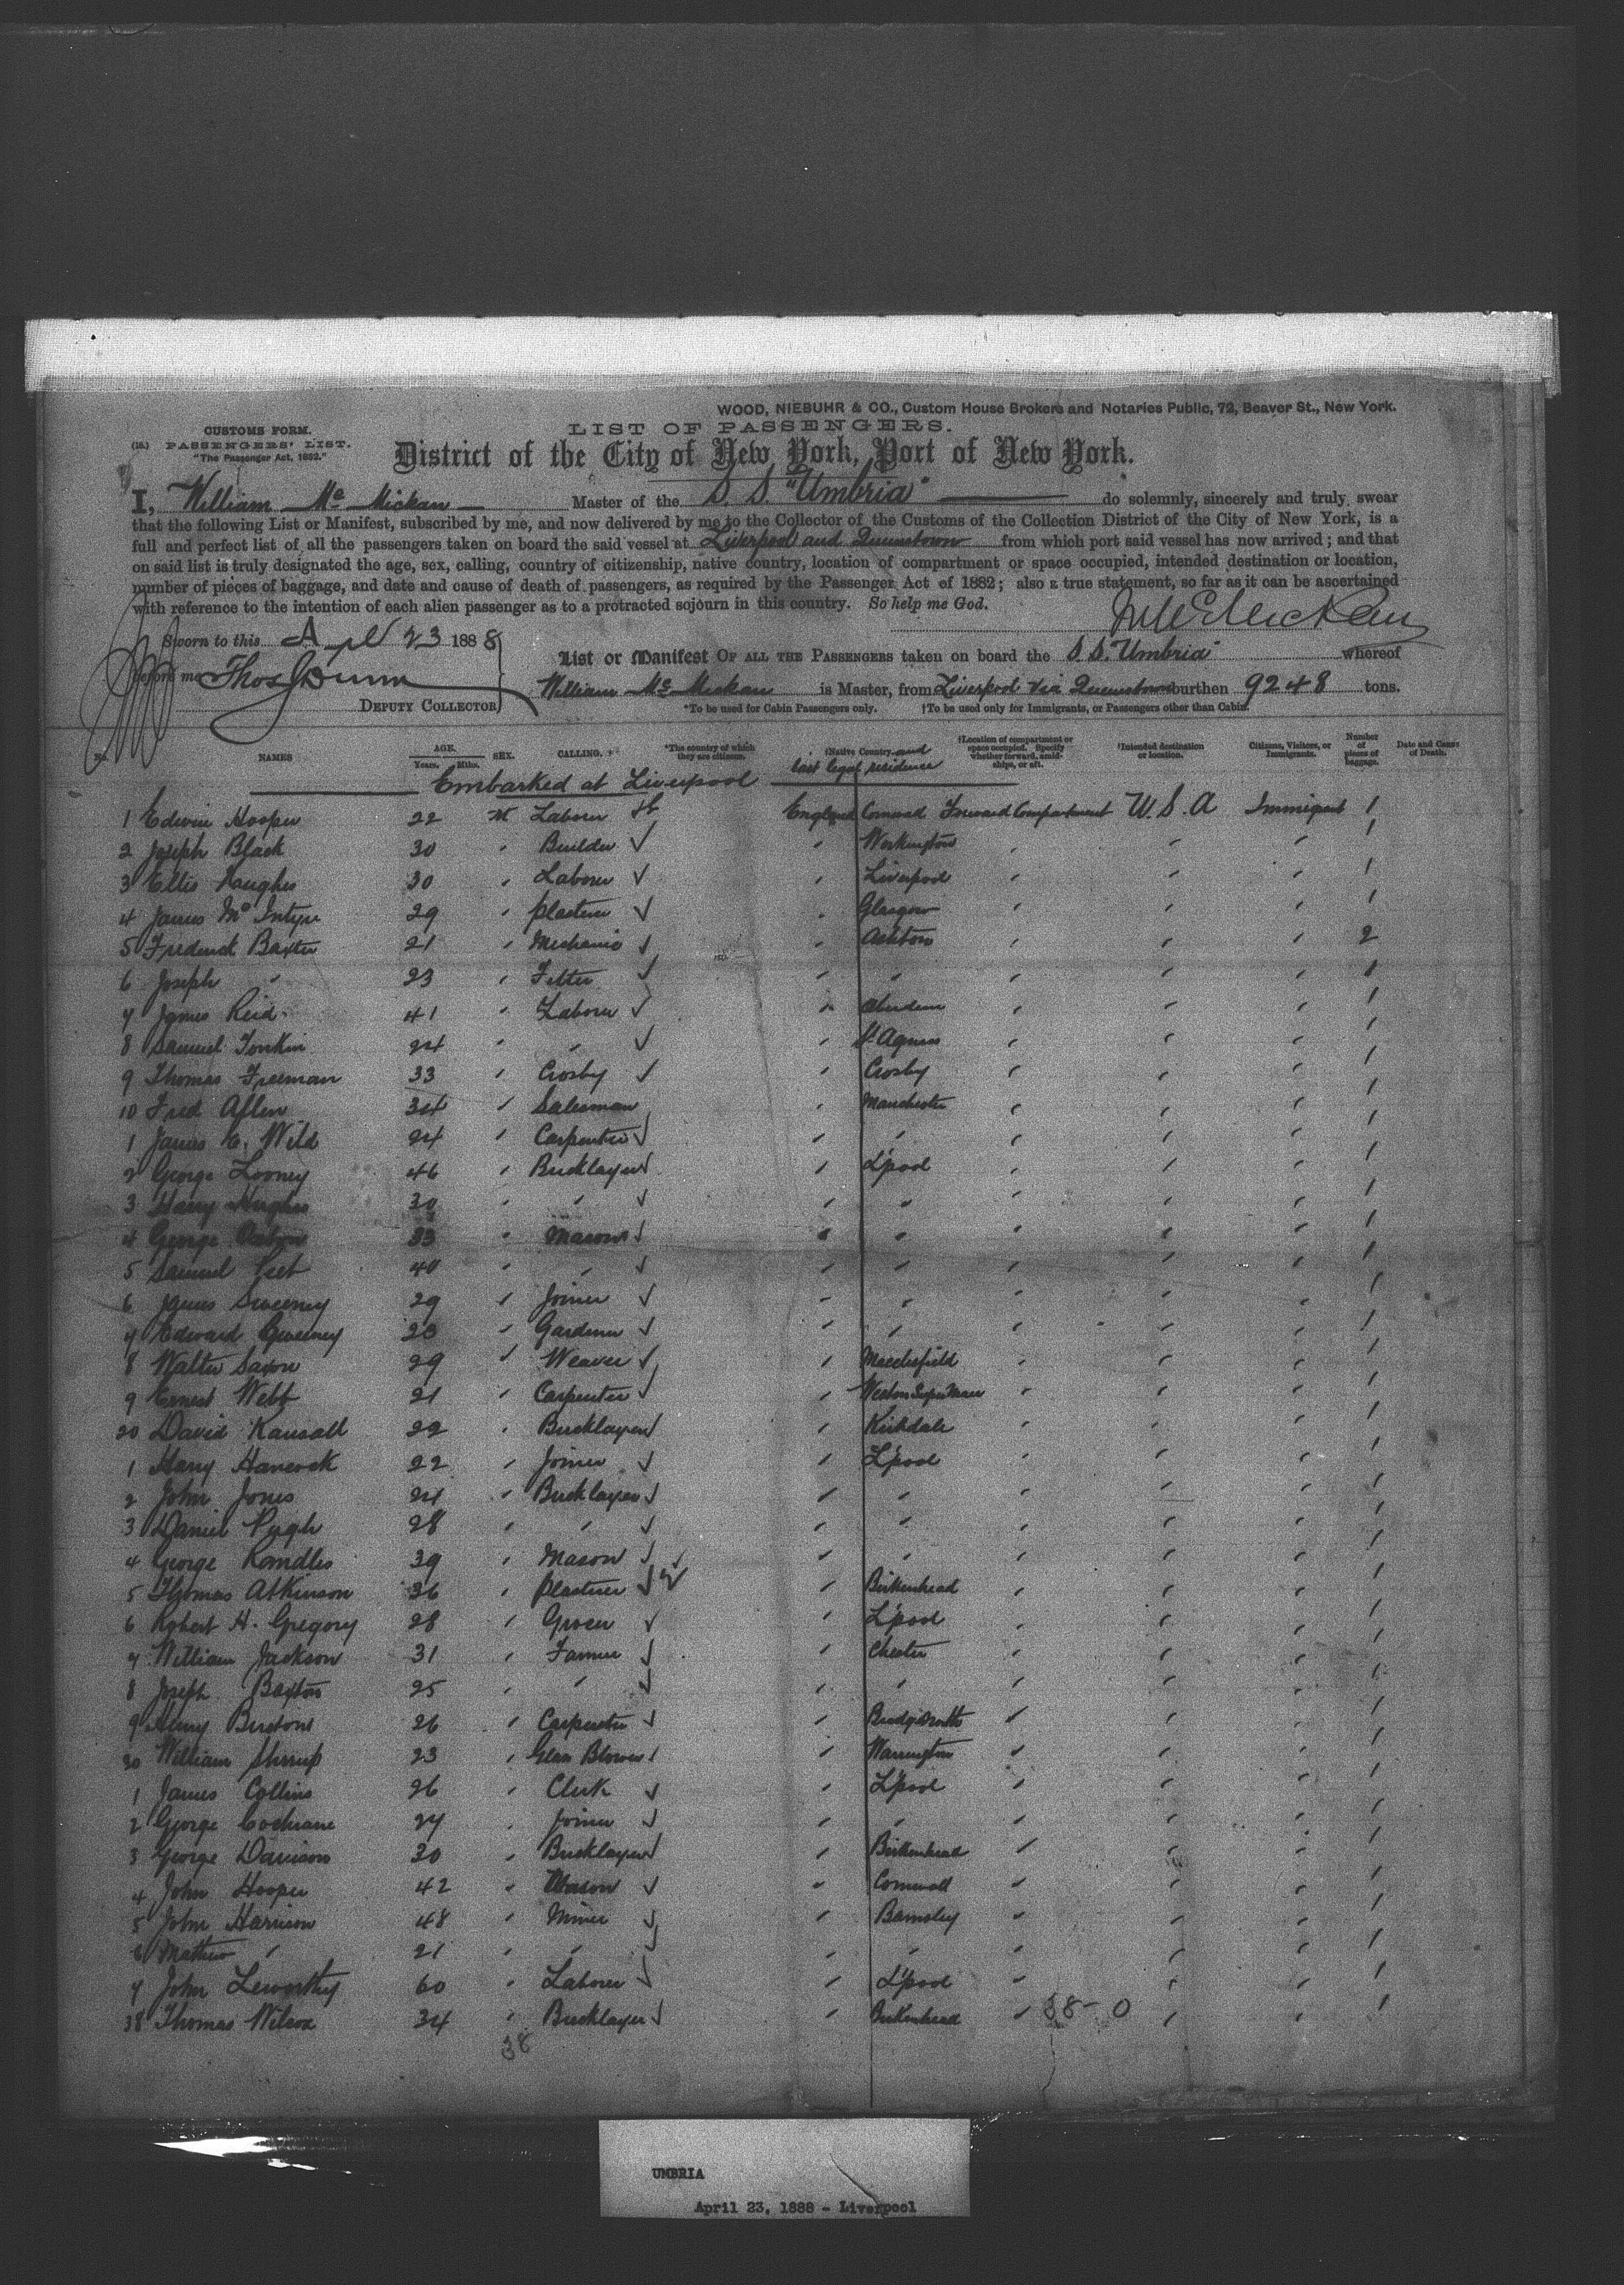 WOOD, NIEBUHR & CO., Custom House Brokers and Notaries Public, 72, Beaver St., New York.
CUSTOMS FORM.
LIST OF PASSENGERS.
(18.) PASSENGERS' LIST.
"The Passenger Act, 1882."
District of the City of New York, Port of New York.
I, William Mc Mickan Master of the S. S. "Umbria" do solemnly, sincerely and truly swear
that the following List or Manifest, subscribed by me, and now delivered by me to the Collector of the Customs of the Collection District of the City of New York, is a
full and perfect list of all the passengers taken on board the said vessel at Liverpool and Queenstown from which port said vessel has now arrived; and that
on said list is truly designated the age, sex, calling, country of citizenship, native country, location of compartment or space occupied, intended destination or location,
number of pieces of baggage, and date and cause of death of passengers, as required by the Passenger Act of 1882; also a true statement, so far as it can be ascertained
with reference to the intention of each alien passenger as to a protracted sojourn in this country. So help me God.
Sworn to this April 23 1888
List or Manifest OF ALL THE PASSENGERS taken on board the S. S. "Umbria" whereof
before me Thos J Dunn
William Mc Mickan is Master, from Liverpool via Queenstown burthen 9248 tons.
DEPUTY COLLECTOR
*To be used for Cabin Passengers only. †To be used only for Immigrants, or Passengers other than Cabin.
No. NAMES AGE. Years. Mths. SEX. CALLING. *The country of which they are citizens. †Native Country and last legal residence †Location of compartment or space occupied. Specify whether forward, amidships, or aft. †Intended destination or location. Citizens, Visitors, or Immigrants. Number of pieces of baggage. Date and Cause of Death.
Embarked at Liverpool
1 Edwin Hooper 22 M Laborer England Cornwall Forward Compartment U. S. A Immigrant 1
2 Joseph Black 30 " Builder " Workington " " " 1
3 Ellis Hughes 30 " Laborer " Liverpool " " " 1
4 James Mc Intyre 29 " plasterer " Glasgow " " " 1
5 Frederick Baxter 21 " Mechanic " Ashton " " " 2
6 Joseph " 23 " Fitter " " " " " 1
7 James Reid 41 " Laborer " Aberdeen " " " 1
8 Samuel Tonkin 24 " " " St. Agness " " " 1
9 Thomas Freeman 33 " Crosby " Crosby " " " 1
10 Fred Allen 34 " Salesman " Manchester " " " 1
1 James Wild 24 " Carpenter " " " " " 1
2 George Looney 46 " Bricklayer " L'pool " " " 1
3 Harry Hughes 30 " " " " " " " 1
4 George 33 " Mason " " " " " 1
5 Samuel 40 " " " " " " " 1
6 James Sweeney 29 " Joiner " " " " " 1
7 Edward 28 " Gardener " " " " " 1
8 Walter Saxon 29 " Weaver " Macclesfield " " " 1
9 Ernest Webb 21 " Carpenter " Weston Super Mare " " " 1
20 David 22 " Bricklayer " Kirkdale " " " 1
1 Harry Hancock 22 " Joiner " L'pool " " " 1
2 John Jones 24 " Bricklayer " " " " " 1
3 Daniel Pugh 28 " " " " " " " 1
4 George Randles 39 " Mason " " " " " 1
5 Thomas Atkinson 36 " plasterer " Birkenhead " " " 1
6 Robert H. Gregory 28 " Grocer " L'pool " " " 1
7 William Jackson 31 " Farmer " Chester " " " 1
8 Joseph 25 " " " " " " " 1
9 Henry 26 " Carpenter " Bridgenorth " " " 1
30 William 23 " Glass Blower " Warrington " " " 1
1 James Collins 26 " Clerk " L'pool " " " 1
2 George Cochrane 27 " Joiner " " " " " 1
3 George Davison 30 " Bricklayer " Birkenhead " " " 1
4 John Hooper 42 " Mason " Cornwall " " " 1
5 John Harrison 48 " Miner " Barnsley " " " 1
6 Mathew " 21 " " " " " " " 1
7 John Leworthy 60 " Laborer " L'pool " " " 1
38 Thomas Wilcox 34 " Bricklayer " Birkenhead " 38-0 " " 1
38
UMBRIA
April 23, 1888 - Liverpool